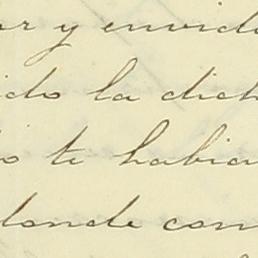 or y envidi
ido la dich
o te habia
donde con